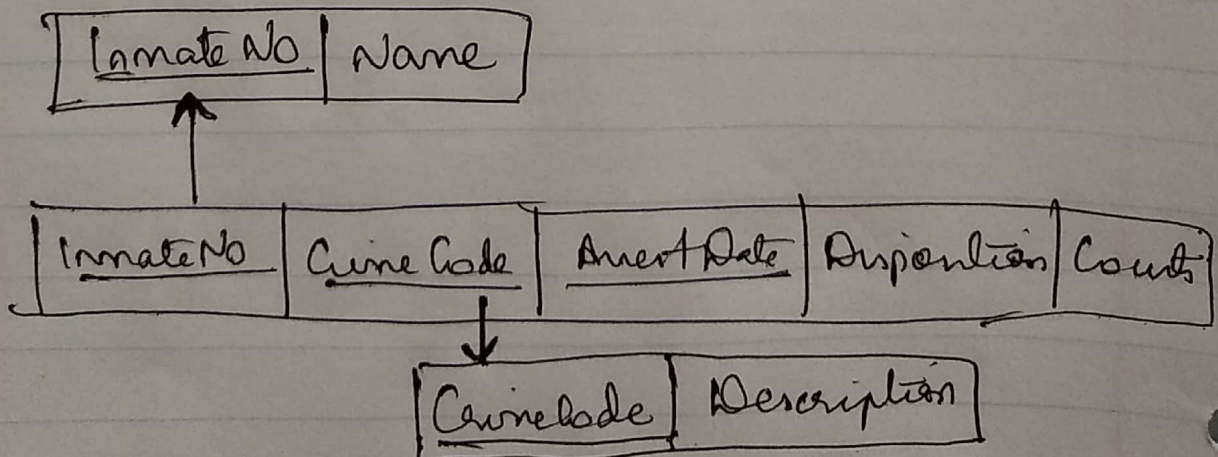 InmateNo Name
InmateNo CrimeCode ArrestDate Disposition Counts
CrimeCode Description